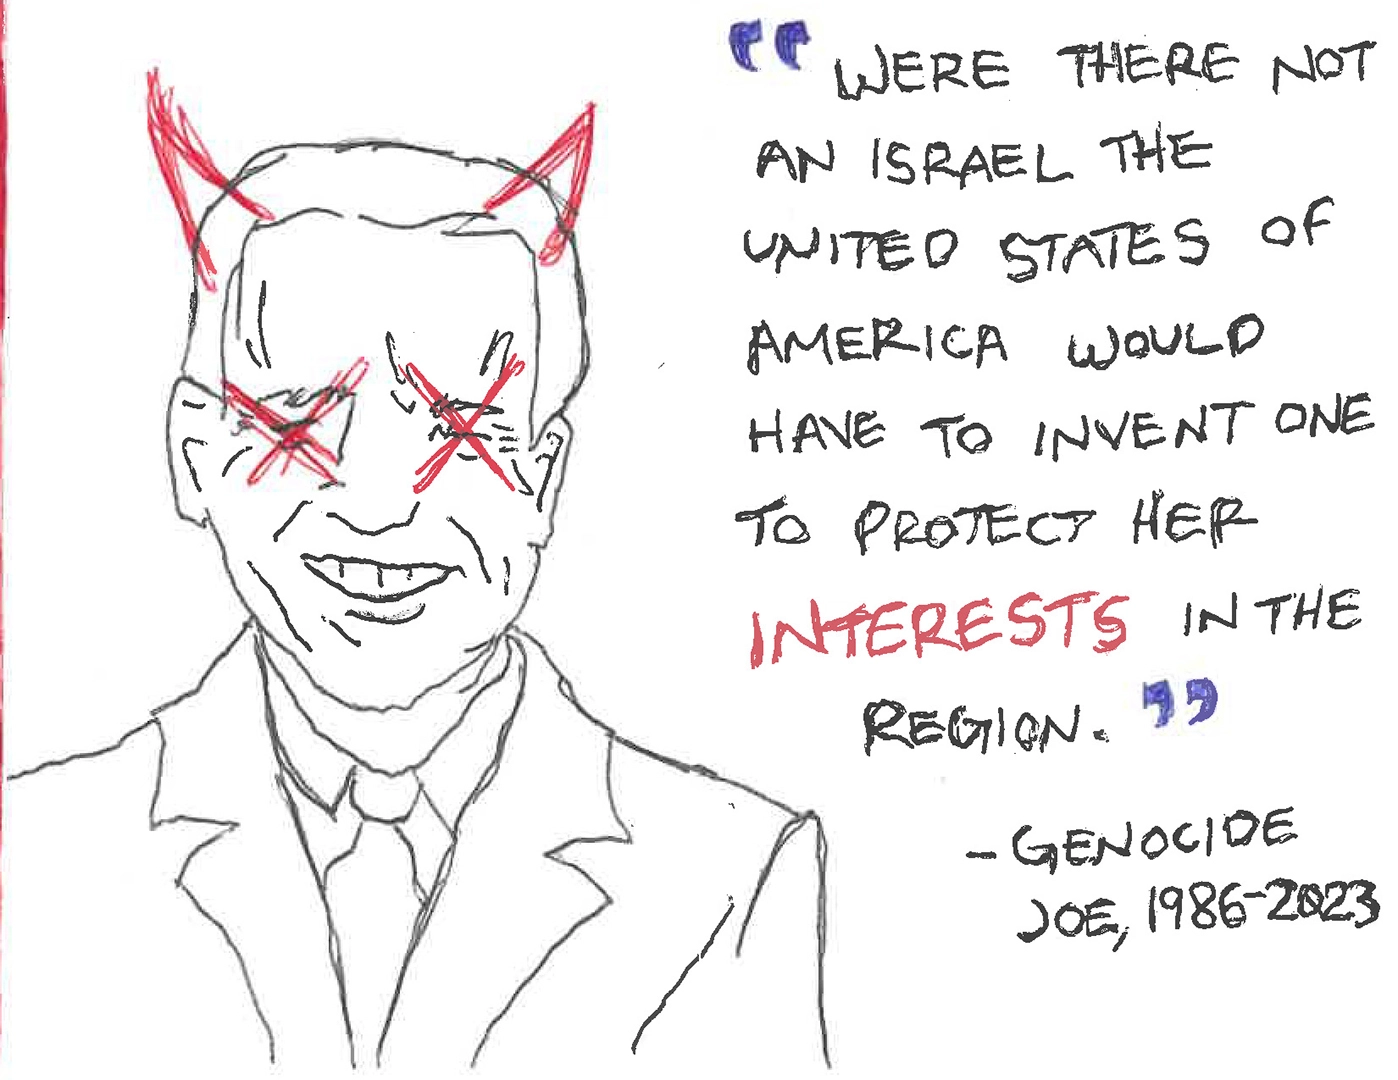 “WERE THERE NOT
AN ISRAEL THE
UNITED STATES OF
AMERICA WOULD
HAVE TO INVENT ONE
TO PROTECT HER
INTERESTS IN THE
REGION.”
-GENOCIDE
JOE, 1986-2023